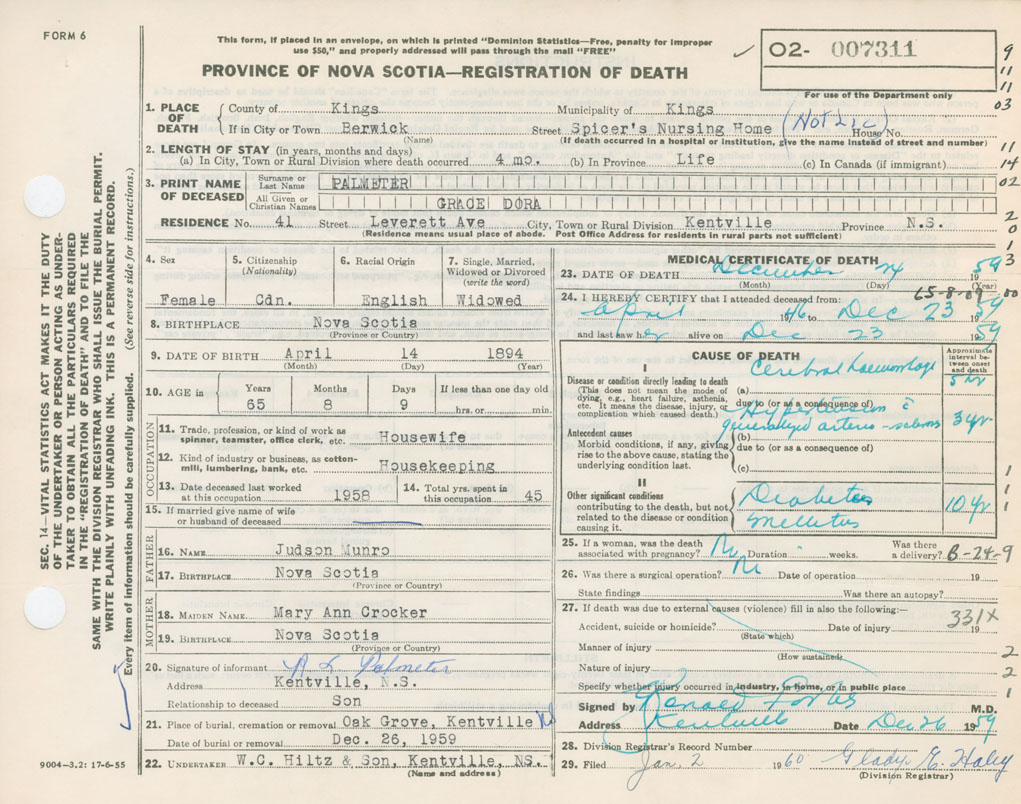 FORM 6
This form, if placed in an envelope, on which is printed "Dominion Statistics—Free, penalty for improper
use $50," and properly addressed will pass through the mail "FREE"
O2- 007311
For use of the Department only
PROVINCE OF NOVA SCOTIA—REGISTRATION OF DEATH
9
11
11
03
11
14
02
2
0
1
3
00
1. PLACE OF DEATH
County of Kings Municipality of Kings
If in City or Town Berwick Street Spicer's Nursing Home (Not Inc) House No.
(Name) (If death occurred in a hospital or institution, give the name instead of street and number)
2. LENGTH OF STAY (in years, months and days)
(a) In City, Town or Rural Division where death occurred 4 mo. (b) In Province Life (c) In Canada (if immigrant)
3. PRINT NAME OF DECEASED
Surname or Last Name PALMETER
All Given or Christian Names GRACE DORA
RESIDENCE No. 41 Street Leverett Ave City, Town or Rural Division Kentville Province N.S.
(Residence means usual place of abode. Post Office Address for residents in rural parts not sufficient)
4. Sex
Female
5. Citizenship (Nationality)
Cdn.
6. Racial Origin
English
7. Single, Married, Widowed or Divorced (write the word)
Widowed
8. BIRTHPLACE Nova Scotia
(Province or Country)
9. DATE OF BIRTH April 14 1894
(Month) (Day) (Year)
10. AGE in Years Months Days If less than one day old
65 8 9 hrs. or min.
OCCUPATION
11. Trade, profession, or kind of work as spinner, teamster, office clerk, etc. Housewife
12. Kind of industry or business, as cotton-mill, lumbering, bank, etc. Housekeeping
13. Date deceased last worked at this occupation 1958
14. Total yrs. spent in this occupation 45
15. If married give name of wife or husband of deceased
FATHER
16. NAME Judson Munro
17. BIRTHPLACE Nova Scotia
(Province or Country)
MOTHER
18. MAIDEN NAME Mary Ann Crocker
19. BIRTHPLACE Nova Scotia
(Province or Country)
20. Signature of informant R L Palmeter
Address Kentville, N.S.
Relationship to deceased Son
21. Place of burial, cremation or removal Oak Grove, Kentville NS
Date of burial or removal Dec. 26, 1959
22. UNDERTAKER W.C. Hiltz & Son, Kentville, NS.
(Name and address)
MEDICAL CERTIFICATE OF DEATH
23. DATE OF DEATH December 24 1959
(Month) (Day) (Year)
65-8-09
24. I HEREBY CERTIFY that I attended deceased from:
April 1946 to Dec 23 1959
and last saw her alive on Dec 23 1959
CAUSE OF DEATH
Approximate interval between onset and death
I
Disease or condition directly leading to death
(This does not mean the mode of dying, e.g., heart failure, asthenia, etc. It means the disease, injury, or complication which caused death.)
(a) Cerebral haemorrhage 5 hr
due to (or as a consequence of)
Hypertension c̄ generalized arterio-sclerosis 3 yr
Antecedent causes
Morbid conditions, if any, giving rise to the above cause, stating the underlying condition last.
(b)
due to (or as a consequence of)
(c)
II
Other significant conditions
contributing to the death, but not related to the disease or condition causing it.
Diabetes 10 yr
Mellitus
1
1
1
25. If a woman, was the death associated with pregnancy? No Duration " weeks. Was there a delivery? B-24-9
26. Was there a surgical operation? No Date of operation 19
State findings Was there an autopsy?
27. If death was due to external causes (violence) fill in also the following:—
Accident, suicide or homicide? Date of injury 19
(State which)
331X
Manner of injury 2
(How sustained)
Nature of injury 2
Specify whether injury occurred in industry, in home, or in public place 1
Signed by Ronald Forbes M.D.
Address Kentville Date Dec 26 1959
28. Division Registrar's Record Number
29. Filed Jan. 2 1960 Gladys E. Haley
(Division Registrar)
SEC. 14—VITAL STATISTICS ACT MAKES IT THE DUTY
OF THE UNDERTAKER OR PERSON ACTING AS UNDER-
TAKER TO OBTAIN ALL THE PARTICULARS REQUIRED
IN THE "REGISTRATION OF DEATH" AND TO FILE THE
SAME WITH THE DIVISION REGISTRAR WHO SHALL ISSUE THE BURIAL PERMIT.
WRITE PLAINLY WITH UNFADING INK. THIS IS A PERMANENT RECORD.
Every item of information should be carefully supplied. (See reverse side for instructions.)
9004—3.2: 17-6-55